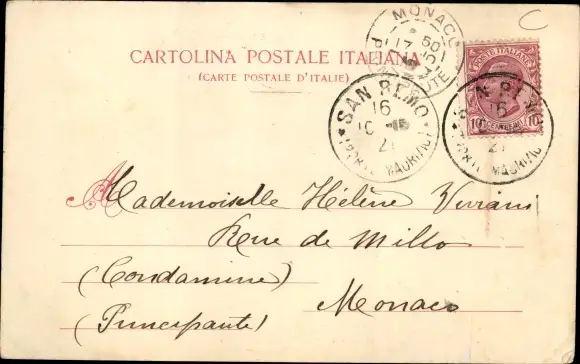 C
MONACO
17 50
PTE
CARTOLINA POSTALE ITALIANA
(CARTE POSTALE D'ITALIE)
POSTE ITALIANE
10 10
SAN REMO
16
10
21
(PORTO MAURIZIO)
SAN REMO
16
21
(PORTO MAURIZIO)
A
Mademoiselle Hélène Vivrani
Rue de Millo
(Condamine)
Monaco
(Principauté)